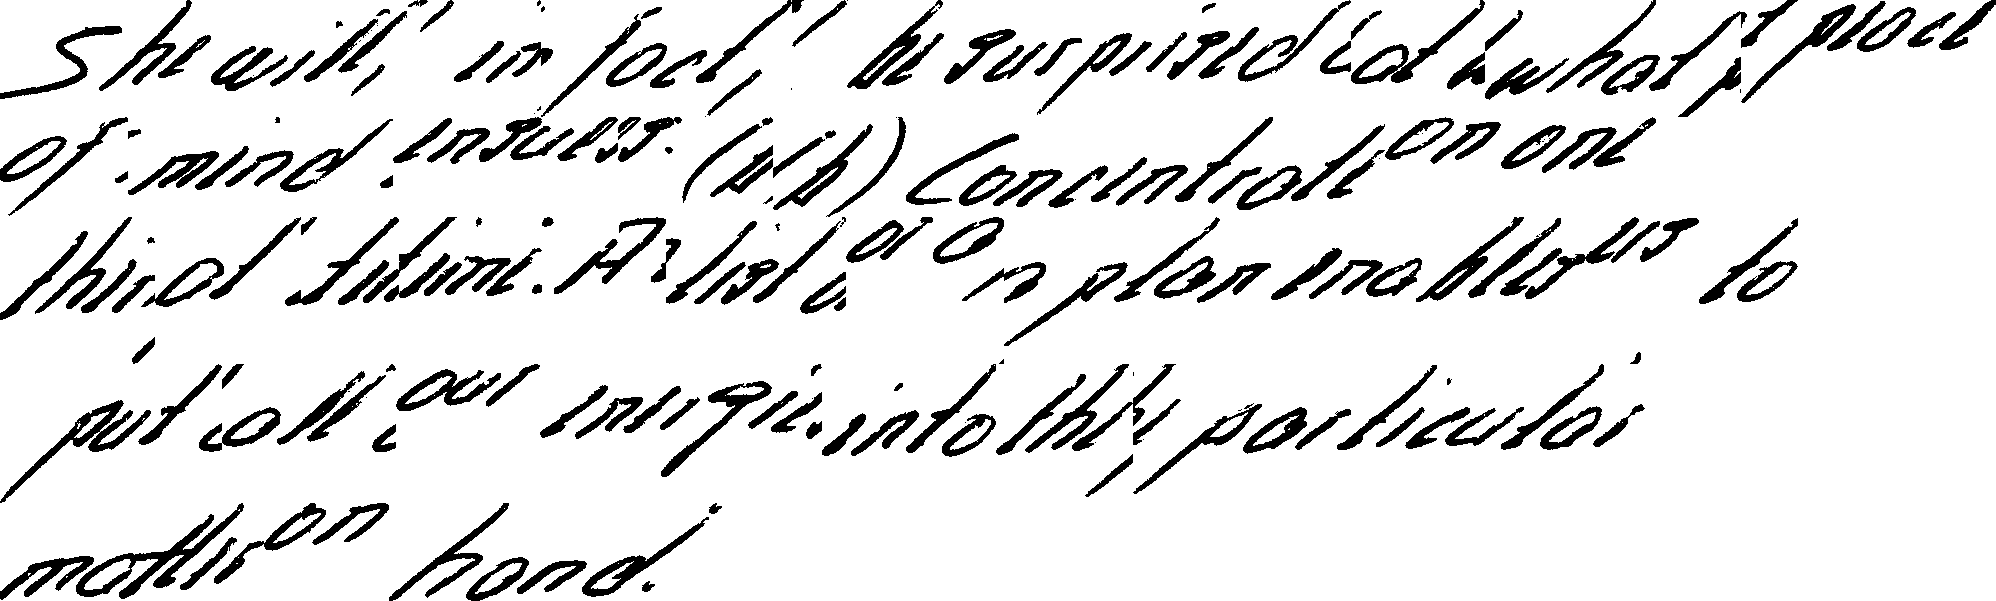 She will, in fact, be surprised at what peace
of mind ensues. (b) Concentrate on one
thing at a time. A list or a plan enables us to
put all our energies into the particular
matter on hand.